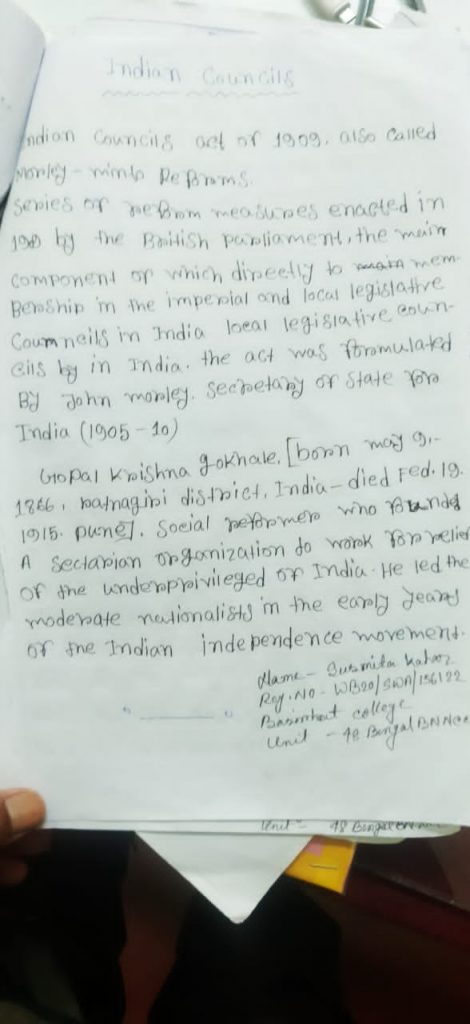 Indian Councils
ndian Councils act of 1909. also called
Morley - minto Reforms.
Series of reform measures enacted in
1909 by the British parliament, the main
component of which direetly to main mem-
Bership in the imperial and local legislative
Coumneils in India loeal legislative coun-
cils by in India. the act was formulated
By John morley. secretary of state for
India (1905-10)
Gopal Krishna gokhale. [born may 9,-
1866, ratnagiri district, India - died Fed. 19.
1915. pune]. social reformer who founded
A sectarian organization to work for relief
of the underpprivileged of India. He led the
moderate nationalists in the early years
of the Indian independence movement.
Name - Susmita
Reg. NO - WB20/SWA/156122
Basirhat college
Unit - 48 Bengal BN NCC
Unit - 48 Bengal BN